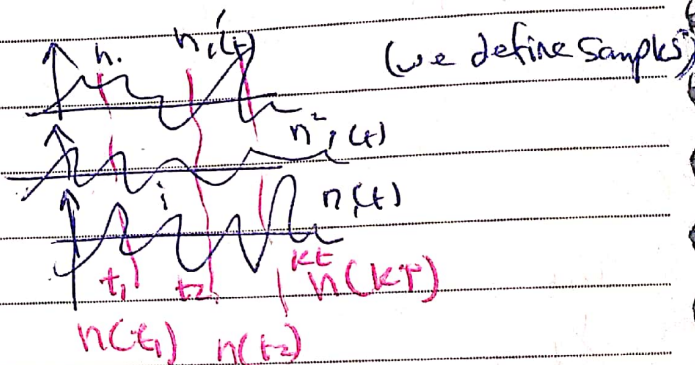 n. n₁'(t) (we define samples)
n²₁(t)
n(t)
t₁ t₂ kt n(kT)
n(t₁) n(t₂)